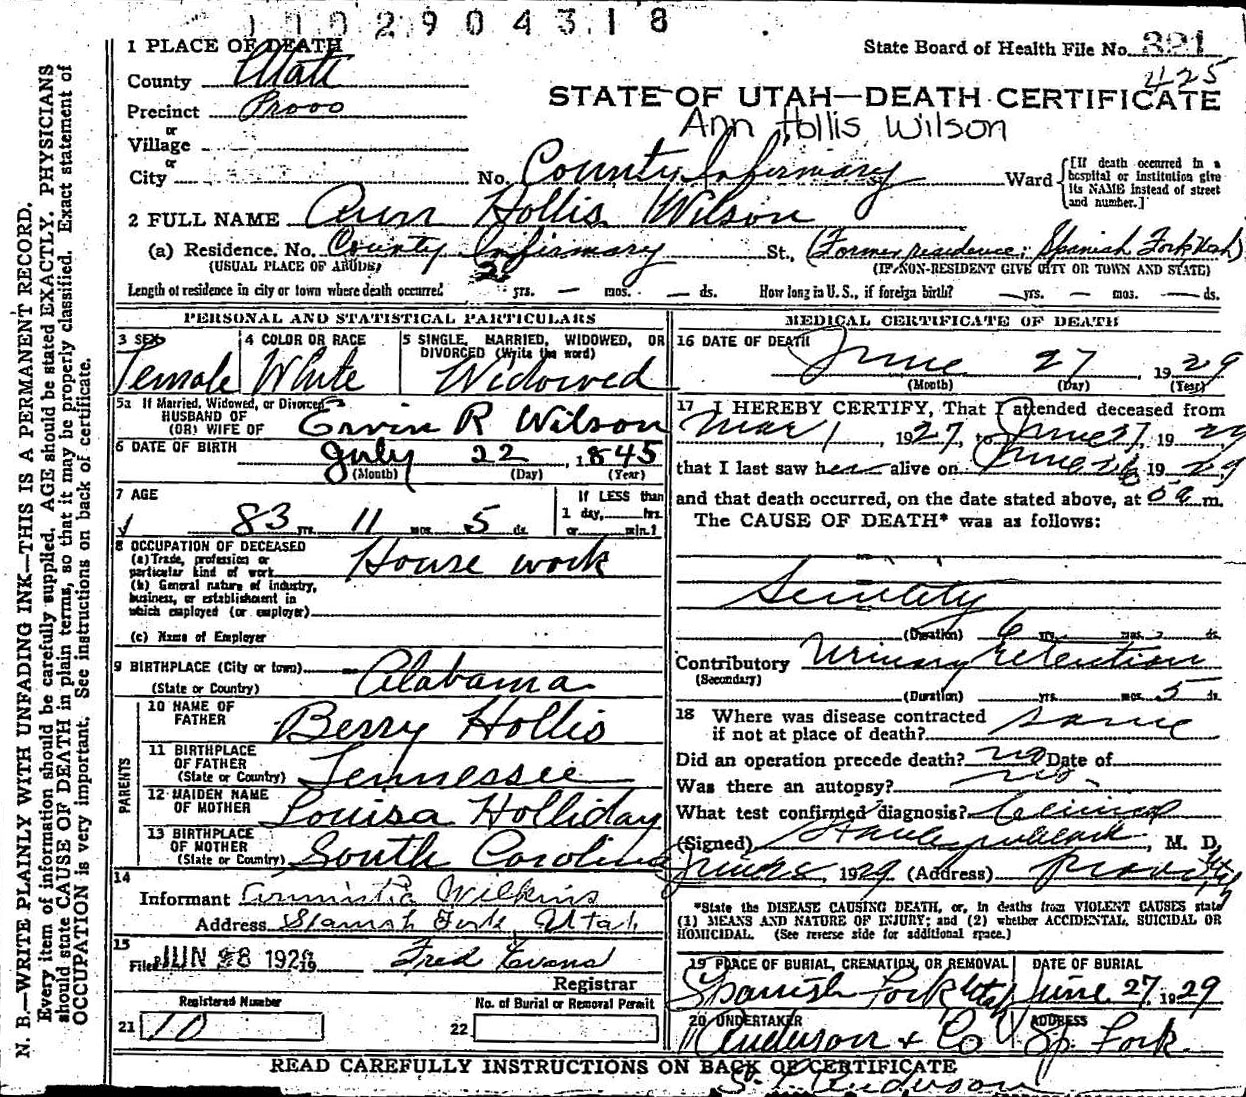 1 1 0 2 9 0 4 3 1 8
1 PLACE OF DEATH
State Board of Health File No. 321
425
County Utah
STATE OF UTAH—DEATH CERTIFICATE
Precinct Provo
Ann Hollis Wilson
or
Village
or
City No. County Infirmary Ward [If death occurred in a hospital or institution give its NAME instead of street and number.]
2 FULL NAME Ann Hollis Wilson
(a) Residence. No. County Infirmary St., (Former residence: Spanish Fork Utah)
(USUAL PLACE OF ABODE) (IF NON-RESIDENT GIVE CITY OR TOWN AND STATE)
Length of residence in city or town where death occurred 2 yrs. — mos. — ds. How long in U. S., if foreign birth? — yrs. — mos. — ds.
PERSONAL AND STATISTICAL PARTICULARS
3 SEX 4 COLOR OR RACE 5 SINGLE, MARRIED, WIDOWED, OR
DIVORCED (Write the word)
Female White Widowed
5a If Married, Widowed, or Divorced
HUSBAND OF
(OR) WIFE OF Ervin R Wilson
6 DATE OF BIRTH July 22, 1845
(Month) (Day) (Year)
7 AGE If LESS than
83 yrs. 11 mos. 5 ds. 1 day, hrs.
or min.?
8 OCCUPATION OF DECEASED
(a) Trade, profession or
particular kind of work House work
(b) General nature of industry,
business, or establishment in
which employed (or employer)
(c) Name of Employer
9 BIRTHPLACE (City or town) — Alabama
(State or Country)
PARENTS
10 NAME OF
FATHER Berry Hollis
11 BIRTHPLACE
OF FATHER
(State or Country) Tennessee
12 MAIDEN NAME
OF MOTHER Louisa Holliday
13 BIRTHPLACE
OF MOTHER
(State or Country) South Carolina
14
Informant Wilkins
Address Spanish Fork, Utah
15
Filed JUN 28 1929 Fred Evans
Registrar
Registered Number No. of Burial or Removal Permit
21 10 22
MEDICAL CERTIFICATE OF DEATH
16 DATE OF DEATH June 27 1929
(Month) (Day) (Year)
17 I HEREBY CERTIFY, That I attended deceased from
Mar 1, 1927, to June 27, 1929
that I last saw her alive on June 26 1929
and that death occurred, on the date stated above, at 5 a m.
The CAUSE OF DEATH* was as follows:
Senility
(Duration) 6 yrs. mos. ds.
Contributory Urinary retention
(Secondary)
(Duration) yrs. mos. 5 ds.
18 Where was disease contracted
if not at place of death? same
Did an operation precede death? no Date of
Was there an autopsy? no
What test confirmed diagnosis? Clinical
(Signed) , M. D.
June 28, 1929 (Address) Provo Utah
*State the DISEASE CAUSING DEATH, or, in deaths from VIOLENT CAUSES state
(1) MEANS AND NATURE OF INJURY; and (2) whether ACCIDENTAL, SUICIDAL OR
HOMICIDAL. (See reverse side for additional space.)
19 PLACE OF BURIAL, CREMATION, OR REMOVAL DATE OF BURIAL
Spanish Fork Utah June 27, 1929
20 UNDERTAKER ADDRESS
Anderson & Co Sp. Fork
READ CAREFULLY INSTRUCTIONS ON BACK OF CERTIFICATE
Anderson
N. B.—WRITE PLAINLY WITH UNFADING INK—THIS IS A PERMANENT RECORD.
Every item of information should be carefully supplied. AGE should be stated EXACTLY. PHYSICIANS
should state CAUSE OF DEATH in plain terms, so that it may be properly classified. Exact statement of
OCCUPATION is very important. See instructions on back of certificate.